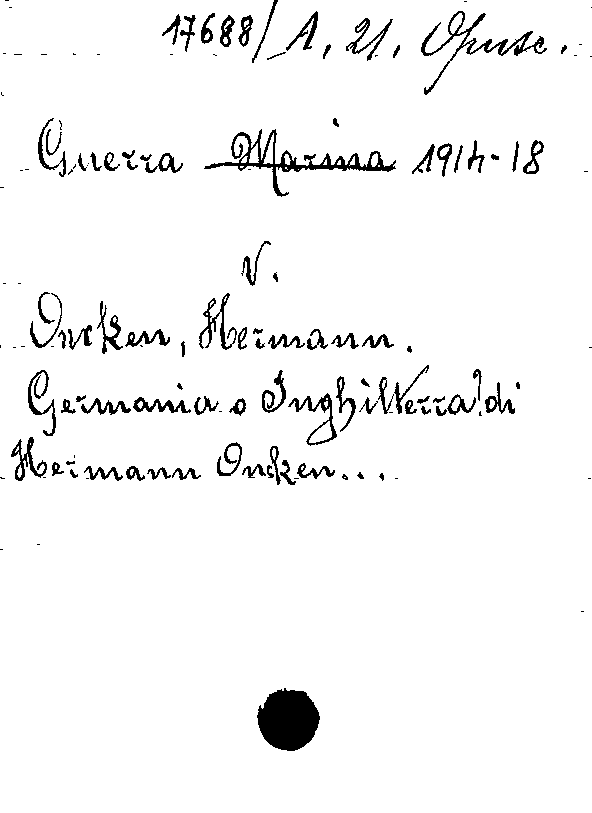 17688/A. 21. Opusc.
Guerra Marina 1914-18
V.
Oncken, Hermann.
Germania o Inghilterra? di
Hermann Oncken...